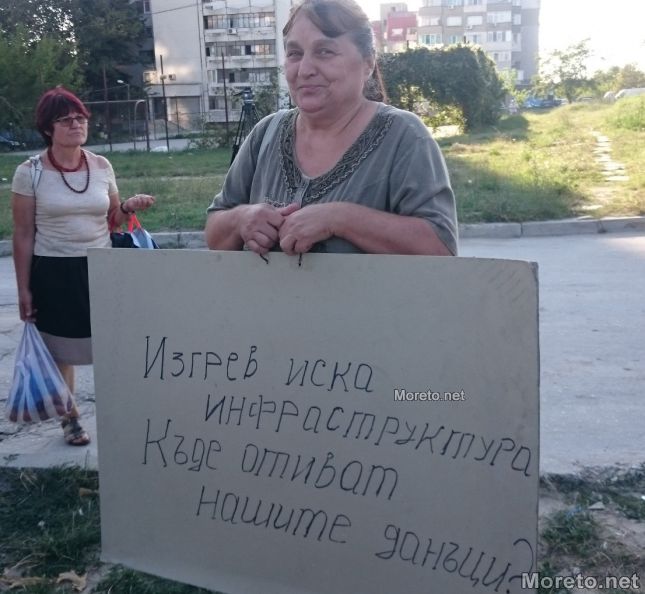 Изгрев иска
Moreto.net
инфраструктура
Къде отиват
нашите данъци?
Moreto.net